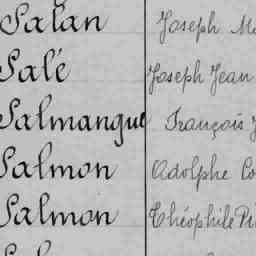 Salan Joseph
Salé Joseph Jean
Salmangue François
Salmon Adolphe
Salmon Théophile